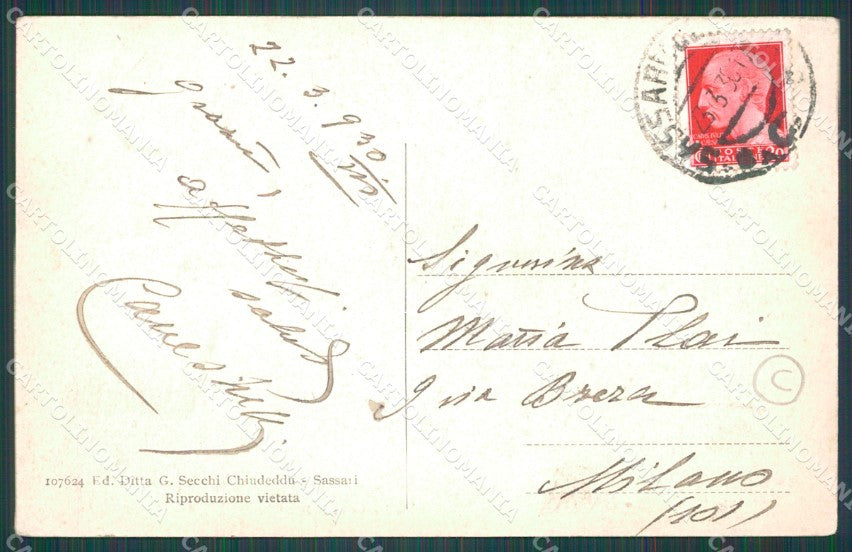 22.3.930
VIII
grazie
affettuosi
saluti
Signorina
Maria
9 via Brera
Milano
(101)
SASSARI
POSTE ITALIANE
C
107624 Ed. Ditta G. Secchi Chiudeddu - Sassari
Riproduzione vietata
CARTOLINOMANIA